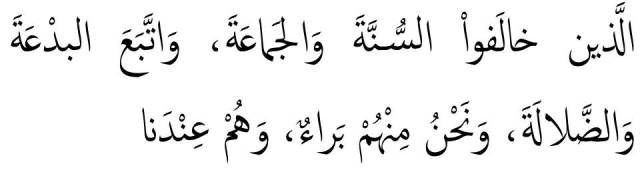 الَّذين خالَفواْ السُّنَّةَ وَالجَماعَةَ، وَاتَّبَعَ البدْعَةَ
وَالضَّلالَةَ، وَنَحْنُ مِنْهُمْ بَراءٌ، وَهُمْ عِنْدَنا